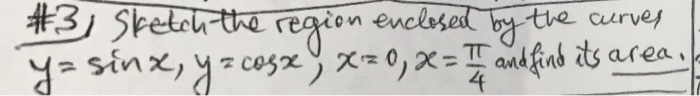 #3, Sketch the region enclosed by the curves
y = sin x, y = cos x, x = 0, x = π/4 and find its area.